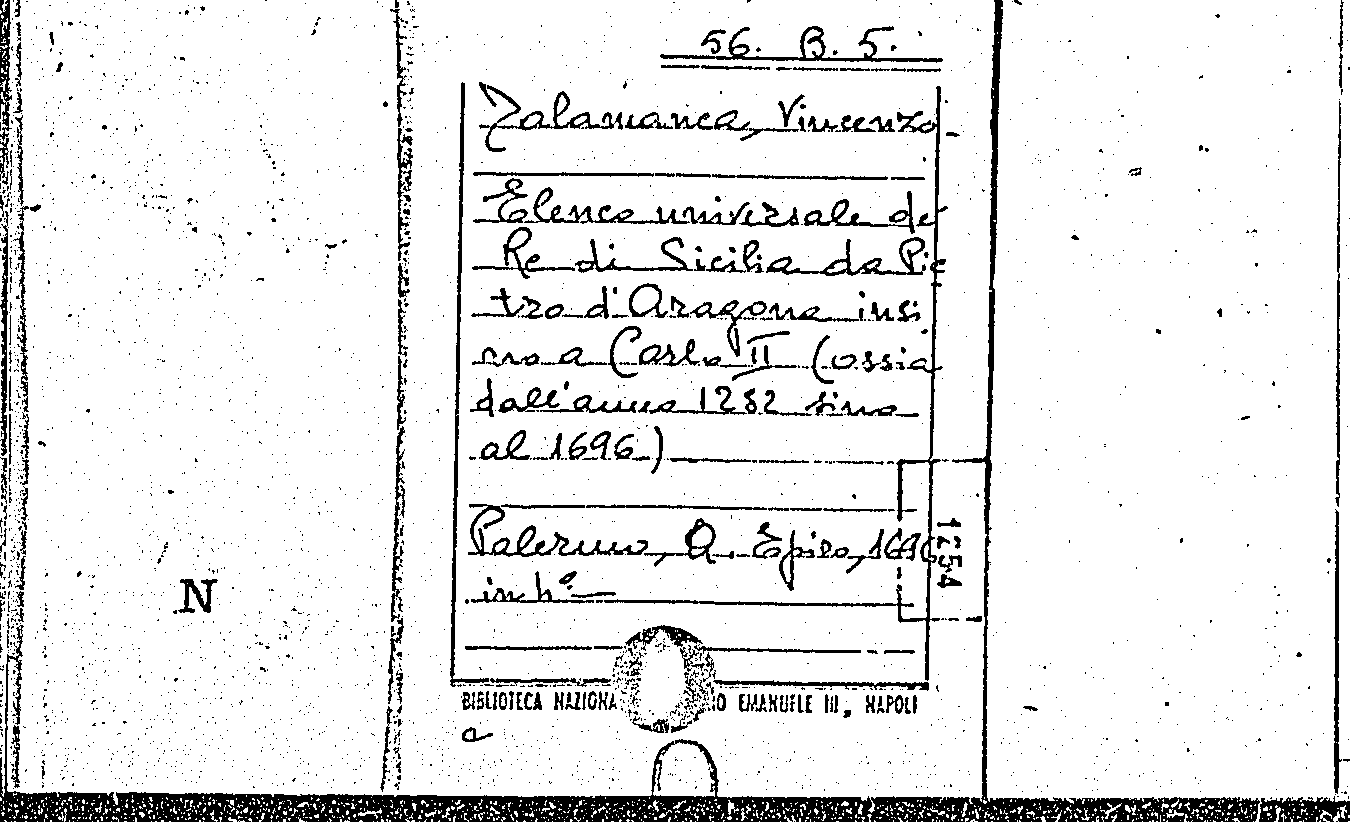 56. B. 5.
Zalamanca, Vincenzo
Elenco universale de'
Re di Sicilia da Pie
tro d'Aragona insi
no a Carlo II (ossia
dall'anno 1282 sino
al 1696)
Palermo, A. Epiro, 1696
in 4º
1254
N
BIBLIOTECA NAZIONA O EMANUELE III, NAPOLI